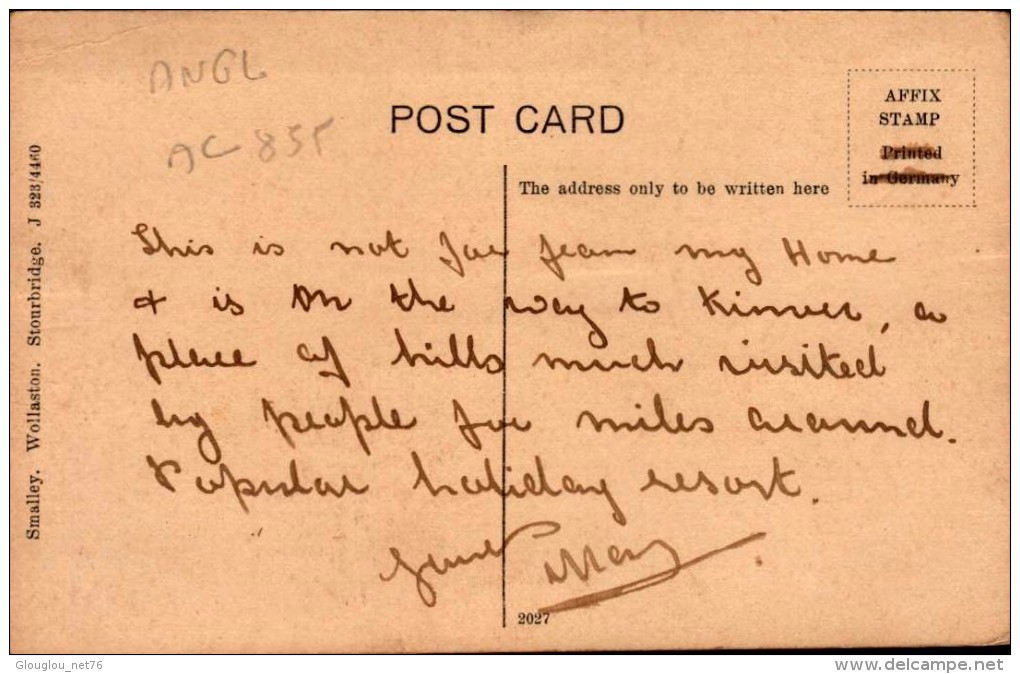 ANGL
AC 835
POST CARD
AFFIX
STAMP
Printed
in Germany
The address only to be written here
Smalley. Wollaston. Stourbridge. J 323/4460
This is not far from my Home
& is on the way to Kinver, a
place of hills much visited
by people for miles around.
Popular holiday resort.
May
2027
Glouglou_net76
www.delcampe.net